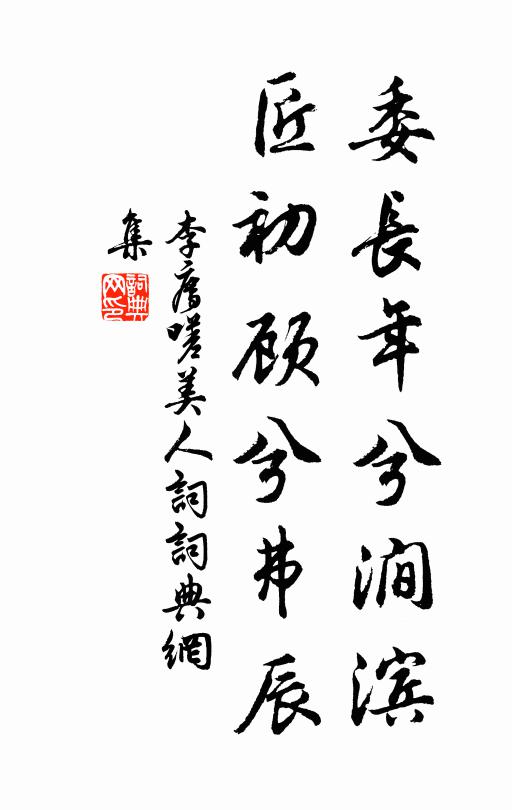 委長年兮澗滨
匠初顾兮弗辰
李廌嗟美人詞詞典網
集
詞典
网印